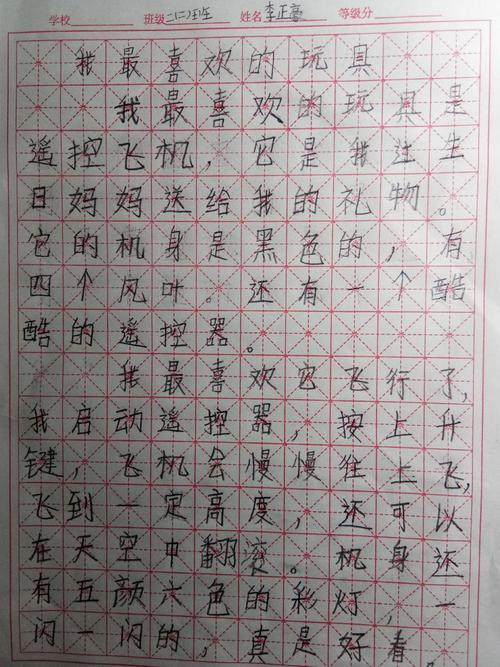 学校 班级二(二)班生 姓名李正豪 等级分
我最喜欢的玩具
我最喜欢的玩具是
遥控飞机，它是我过生
日妈妈送给我的礼物。
它的机身是黑色的，有
四个风叶。还有一个酷
酷的遥控器。
我最喜欢它飞行了，
我启动遥控器，按上升
键，飞机会慢慢往上飞，
飞到一定高度，还可以
在天空中翻滚。机身还
有五颜六色的彩灯，一
闪一闪的，真是好看